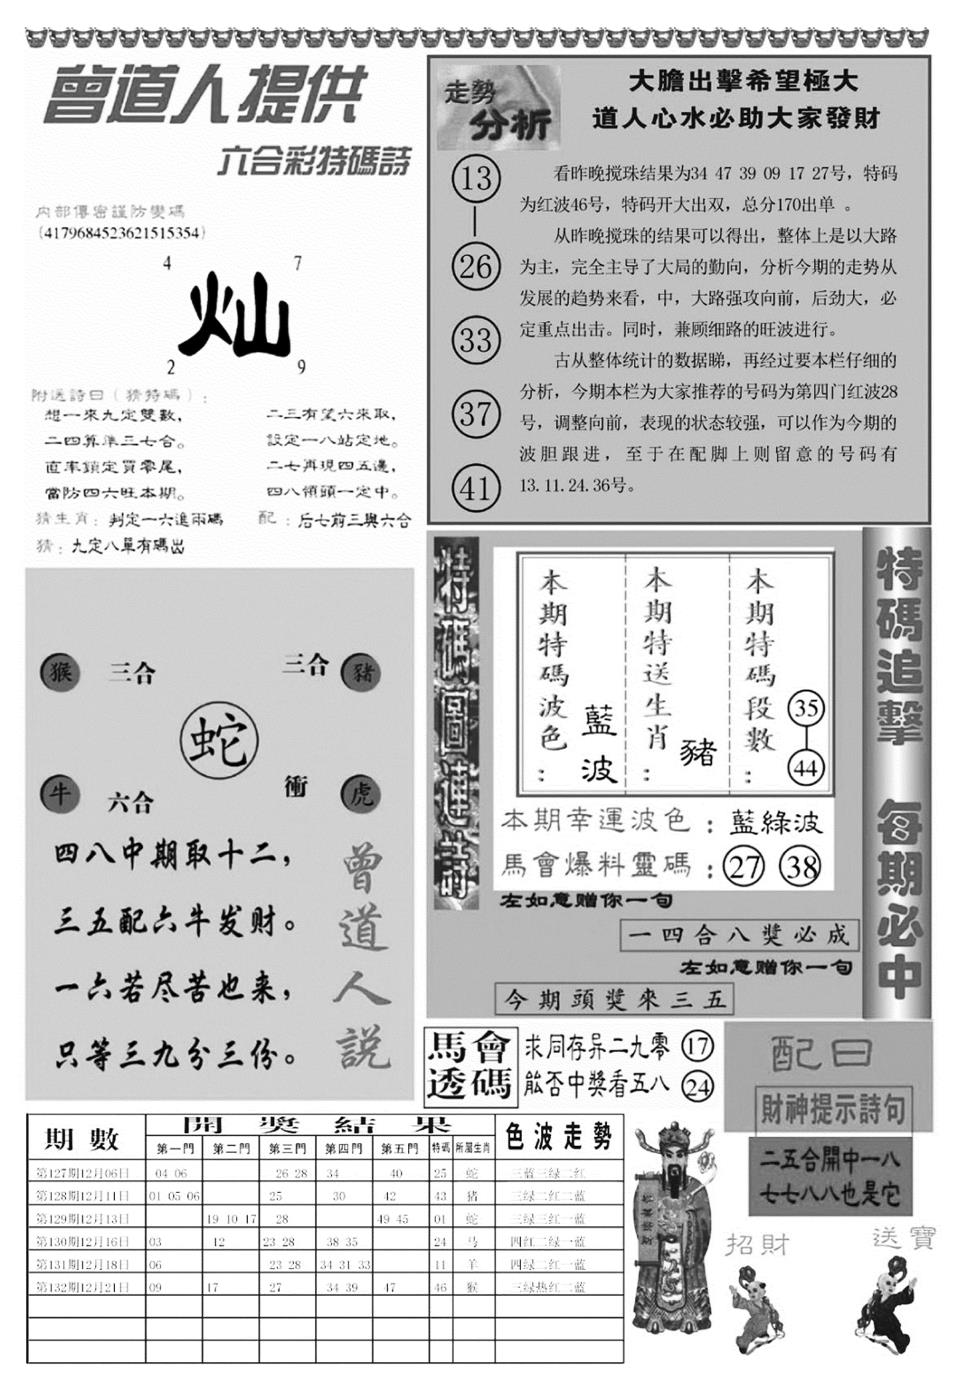 曾道人提供
六合彩特碼詩
内部傳密謹防變碼
(4179684523621515354)
4 7
灿
2 9
附送詩曰(猜特碼):
想一來九定雙數, 二三有望六來取,
二四算準三七合。 設定一八站定地。
直車鎖定買零尾, 二七再現四五邊,
當防四六旺本期。 四八領頭一定中。
猜生肖: 判定一六追兩碼 配: 后七前三與六合
猜: 九定八單有碼出
走勢
分析
大膽出擊希望極大
道人心水必助大家發財
13
26
33
37
41
看昨晚搅珠结果为34 47 39 09 17 27号,特码
为红波46号,特码开大出双,总分170出单 。
从昨晚搅珠的结果可以得出,整体上是以大路
为主,完全主导了大局的勤向,分析今期的走势从
发展的趋势来看,中,大路强攻向前,后劲大,必
定重点出击。同时,兼顾细路的旺波进行。
古从整体统计的数据睇,再经过要本栏仔细的
分析,今期本栏为大家推荐的号码为第四门红波28
号,调整向前,表现的状态较强,可以作为今期的
波胆跟进,至于在配脚上则留意的号码有
13.11.24.36号。
猴 三合 三合 豬
蛇
牛 六合 衝 虎
四八中期取十二,
三五配六牛发财。
一六若尽苦也来,
只等三九分三份。
曾道人説
本期特碼波色: 藍波
本期特送生肖: 豬
本期特碼段數: 35 44
本期幸運波色: 藍綠波
馬會爆料靈碼: 27 38
左如意赠你一句
一四合八獎必成
左如意赠你一句
今期頭獎來三五
特碼追擊 每期必中
馬會
透碼
求同存异二九零 17
能否中獎看五八 24
配曰
財神提示詩句
二五合開中一八
七七八八也是它
招財 送寶
期數 開獎結果 色波走勢
第一門 第二門 第三門 第四門 第五門 特碼 所屬生肖
第127期12月06日 04 06 26 28 34 40 25 蛇 三蓝三绿二红
第128期12月11日 01 05 06 25 30 42 43 猪 三绿二红二蓝
第129期12月13日 19 10 17 28 49 45 01 蛇 三绿三红一蓝
第130期12月16日 03 12 23 28 38 35 24 马 四红二绿一蓝
第131期12月18日 06 23 28 34 31 33 11 羊 四绿二红一蓝
第132期12月21日 09 17 27 34 39 47 46 猴 三绿热红二蓝